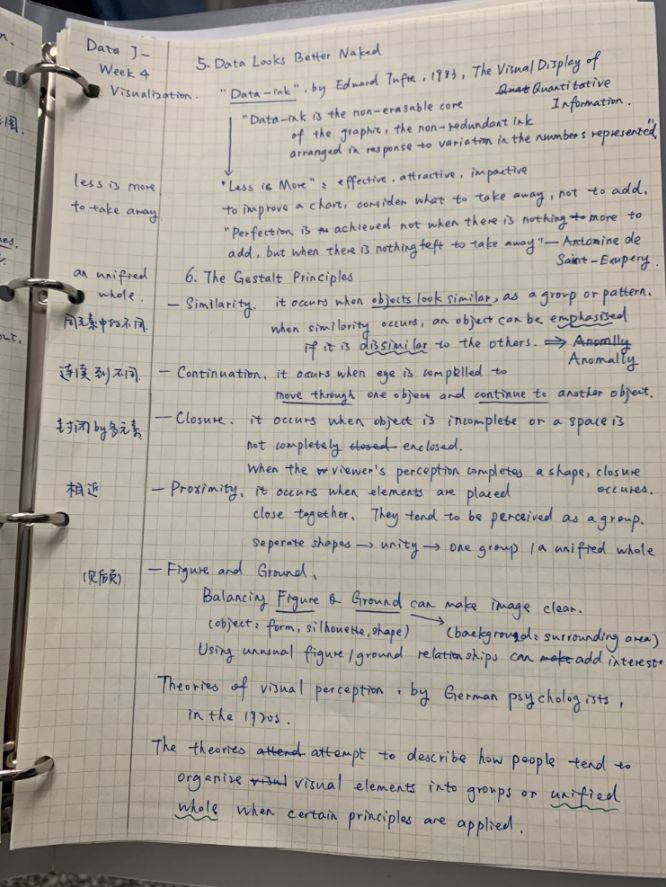 Data J-
Week 4
Visualization.
5. Data Looks Better Naked
"Data-ink", by Edward Tufte, 1983, The Visual Display of
Quat Quantitative
Information.
"Data-ink is the non-erasable core
of the graphic, the non-redundant ink
arranged in response to variation in the numbers represented",
less is more
to take away
"Less is More": effective, attractive, impactive
to improve a chart, consider what to take away, not to add.
"Perfection is achieved not when there is nothing to more to
add, but when there is nothing left to take away" — Antonine de
Saint-Exupery.
an unified
whole.
6. The Gestalt Principles
同元素中的不同.
— Similarity. it occurs when objects look similar, as a group or pattern.
when similority occurs, an object can be emphasised
if it is dissimilar to the others. ⇒ Anomlly
Anomally
连续到不同.
— Continuation. it occurs when eye is complled to
move through one object and continue to another object.
封闭by多元素
— Closure. it occurs when object is incomplete or a space is
not completely closed enclosed.
When the viewer's perception completes a shape, closure
occures.
相近
— Proximity. it occurs when elements are placed
close together. They tend to be perceived as a group.
seperate shapes → unity → one group / a unified whole
— Figure and Ground,
Balancing Figure & Ground can make image clear.
(object: form, silhouette, shape) (background: surrounding area)
Using unusual figure/ground relationships can make add interest.
Theories of visual perception, by German psychologists,
in the 1920s.
The theories attend attempt to describe how people tend to
organize visul visual elements into groups or unified
whole when certain principles are applied.